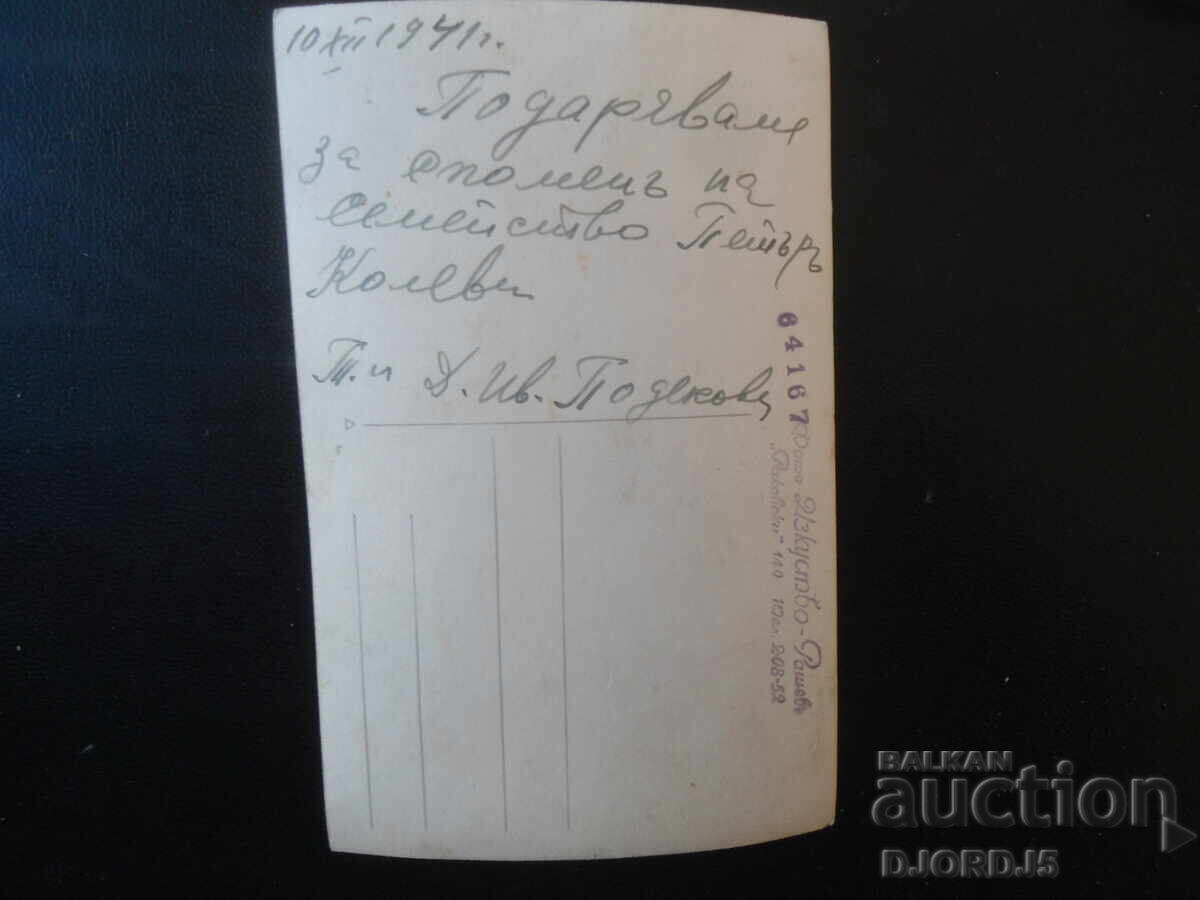 10 XII 1941 г.
Подаряваме
за споменъ на
семейство Петъръ
Колеви
Т. и Д. Ив.
64167
Фото Изкуство - Рашевъ
"Раковски" 110 Тел. 2-08-52
BALKAN
auction
DJORDJ5